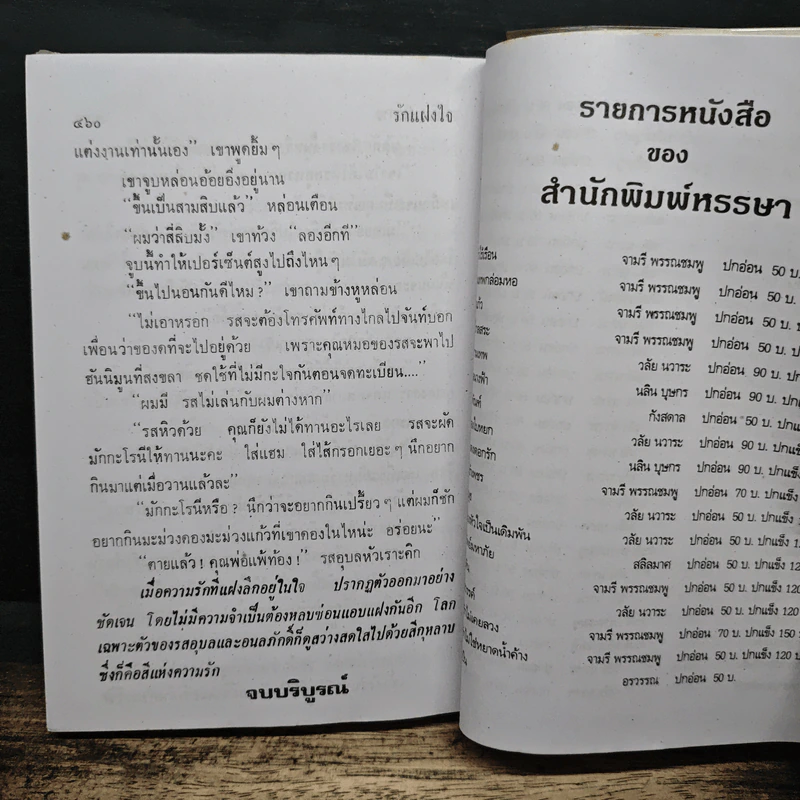 ๔๖๐
รักแฝงใจ
แต่งงานเท่านั้นเอง” เขาพูดยิ้ม ๆ
เขาจูบหล่อนอ้อยอิ่งอยู่นาน
“ขึ้นเป็นสามสิบแล้ว” หล่อนเตือน
“ผมว่าสี่สิบมั้ง” เขาท้วง “ลองอีกที”
จูบนี้ทำให้เปอร์เซ็นต์สูงไปถึงไหน ๆ
“ขึ้นไปนอนกันดีไหม ?” เขาถามข้างหูหล่อน
“ไม่เอาหรอก รสจะต้องโทรศัพท์ทางไกลไปจันท์บอก
เพื่อนว่าของดที่จะไปอยู่ด้วย เพราะคุณหมอของรสจะพาไป
ฮันนิมูนที่สงขลา ชดใช้ที่ไม่มีกะใจกันตอนจดทะเบียน....”
“ผมมี รสไม่เล่นกับผมต่างหาก”
“รสหิวด้วย คุณก็ยังไม่ได้ทานอะไรเลย รสจะผัด
มักกะโรนีให้ทานนะคะ ใส่แฮม ใส่ไส้กรอกเยอะ ๆ นึกอยาก
กินมาแต่เมื่อวานแล้วละ”
“มักกะโรนีหรือ ? นึกว่าจะอยากกินเปรี้ยว ๆ แต่ผมก็ชัก
อยากกินมะม่วงดองมะม่วงแก้วที่เขาดองในไหน่ะ อร่อยนะ”
“ตายแล้ว ! คุณพ่อแพ้ท้อง !” รสอุบลหัวเราะคิก
เมื่อความรักที่แฝงลึกอยู่ในใจ ปรากฏตัวออกมาอย่าง
ชัดเจน โดยไม่มีความจำเป็นต้องหลบซ่อนแอบแฝงกันอีก โลก
เฉพาะตัวของรสอุบลและอนลภักดิ์ก็ดูสว่างสดใสไปด้วยสีกุหลาบ
ซึ่งก็คือสีแห่งความรัก
จบบริบูรณ์
รายการหนังสือ
ของ
สำนักพิมพ์หรรษา
จามรี พรรณชมพู ปกอ่อน 50 บ.
จามรี พรรณชมพู ปกอ่อน 50 บ.
จามรี พรรณชมพู ปกอ่อน 50 บ. ป
จามรี พรรณชมพู ปกอ่อน 50 บ.
วลัย นวาระ ปกอ่อน 90 บ. ป
นลิน บุษกร ปกอ่อน 90 บ. ปกแ
กังสดาล ปกอ่อน 50 บ. ปกแ
วลัย นวาระ ปกอ่อน 90 บ. ปกแ
นลิน บุษกร ปกอ่อน 90 บ. ปกแ
จามรี พรรณชมพู ปกอ่อน 70 บ. ปกแข็ง
วลัย นวาระ ปกอ่อน 50 บ. ปกแข็ง
หัวใจเป็นเดิมพัน วลัย นวาระ ปกอ่อน 50 บ. ปกแข็ง 1
สลิลมาศ ปกอ่อน 50 บ. ปกแข็ง 120
จามรี พรรณชมพู ปกอ่อน 50 บ. ปกแข็ง 120
วลัย นวาระ ปกอ่อน 50 บ. ปกแข็ง 120
จามรี พรรณชมพู ปกอ่อน 70 บ. ปกแข็ง 150
ใช่หยาดน้ำค้าง จามรี พรรณชมพู ปกอ่อน 50 บ. ปกแข็ง 120 บ
อรวรรณ ปกอ่อน 50 บ.